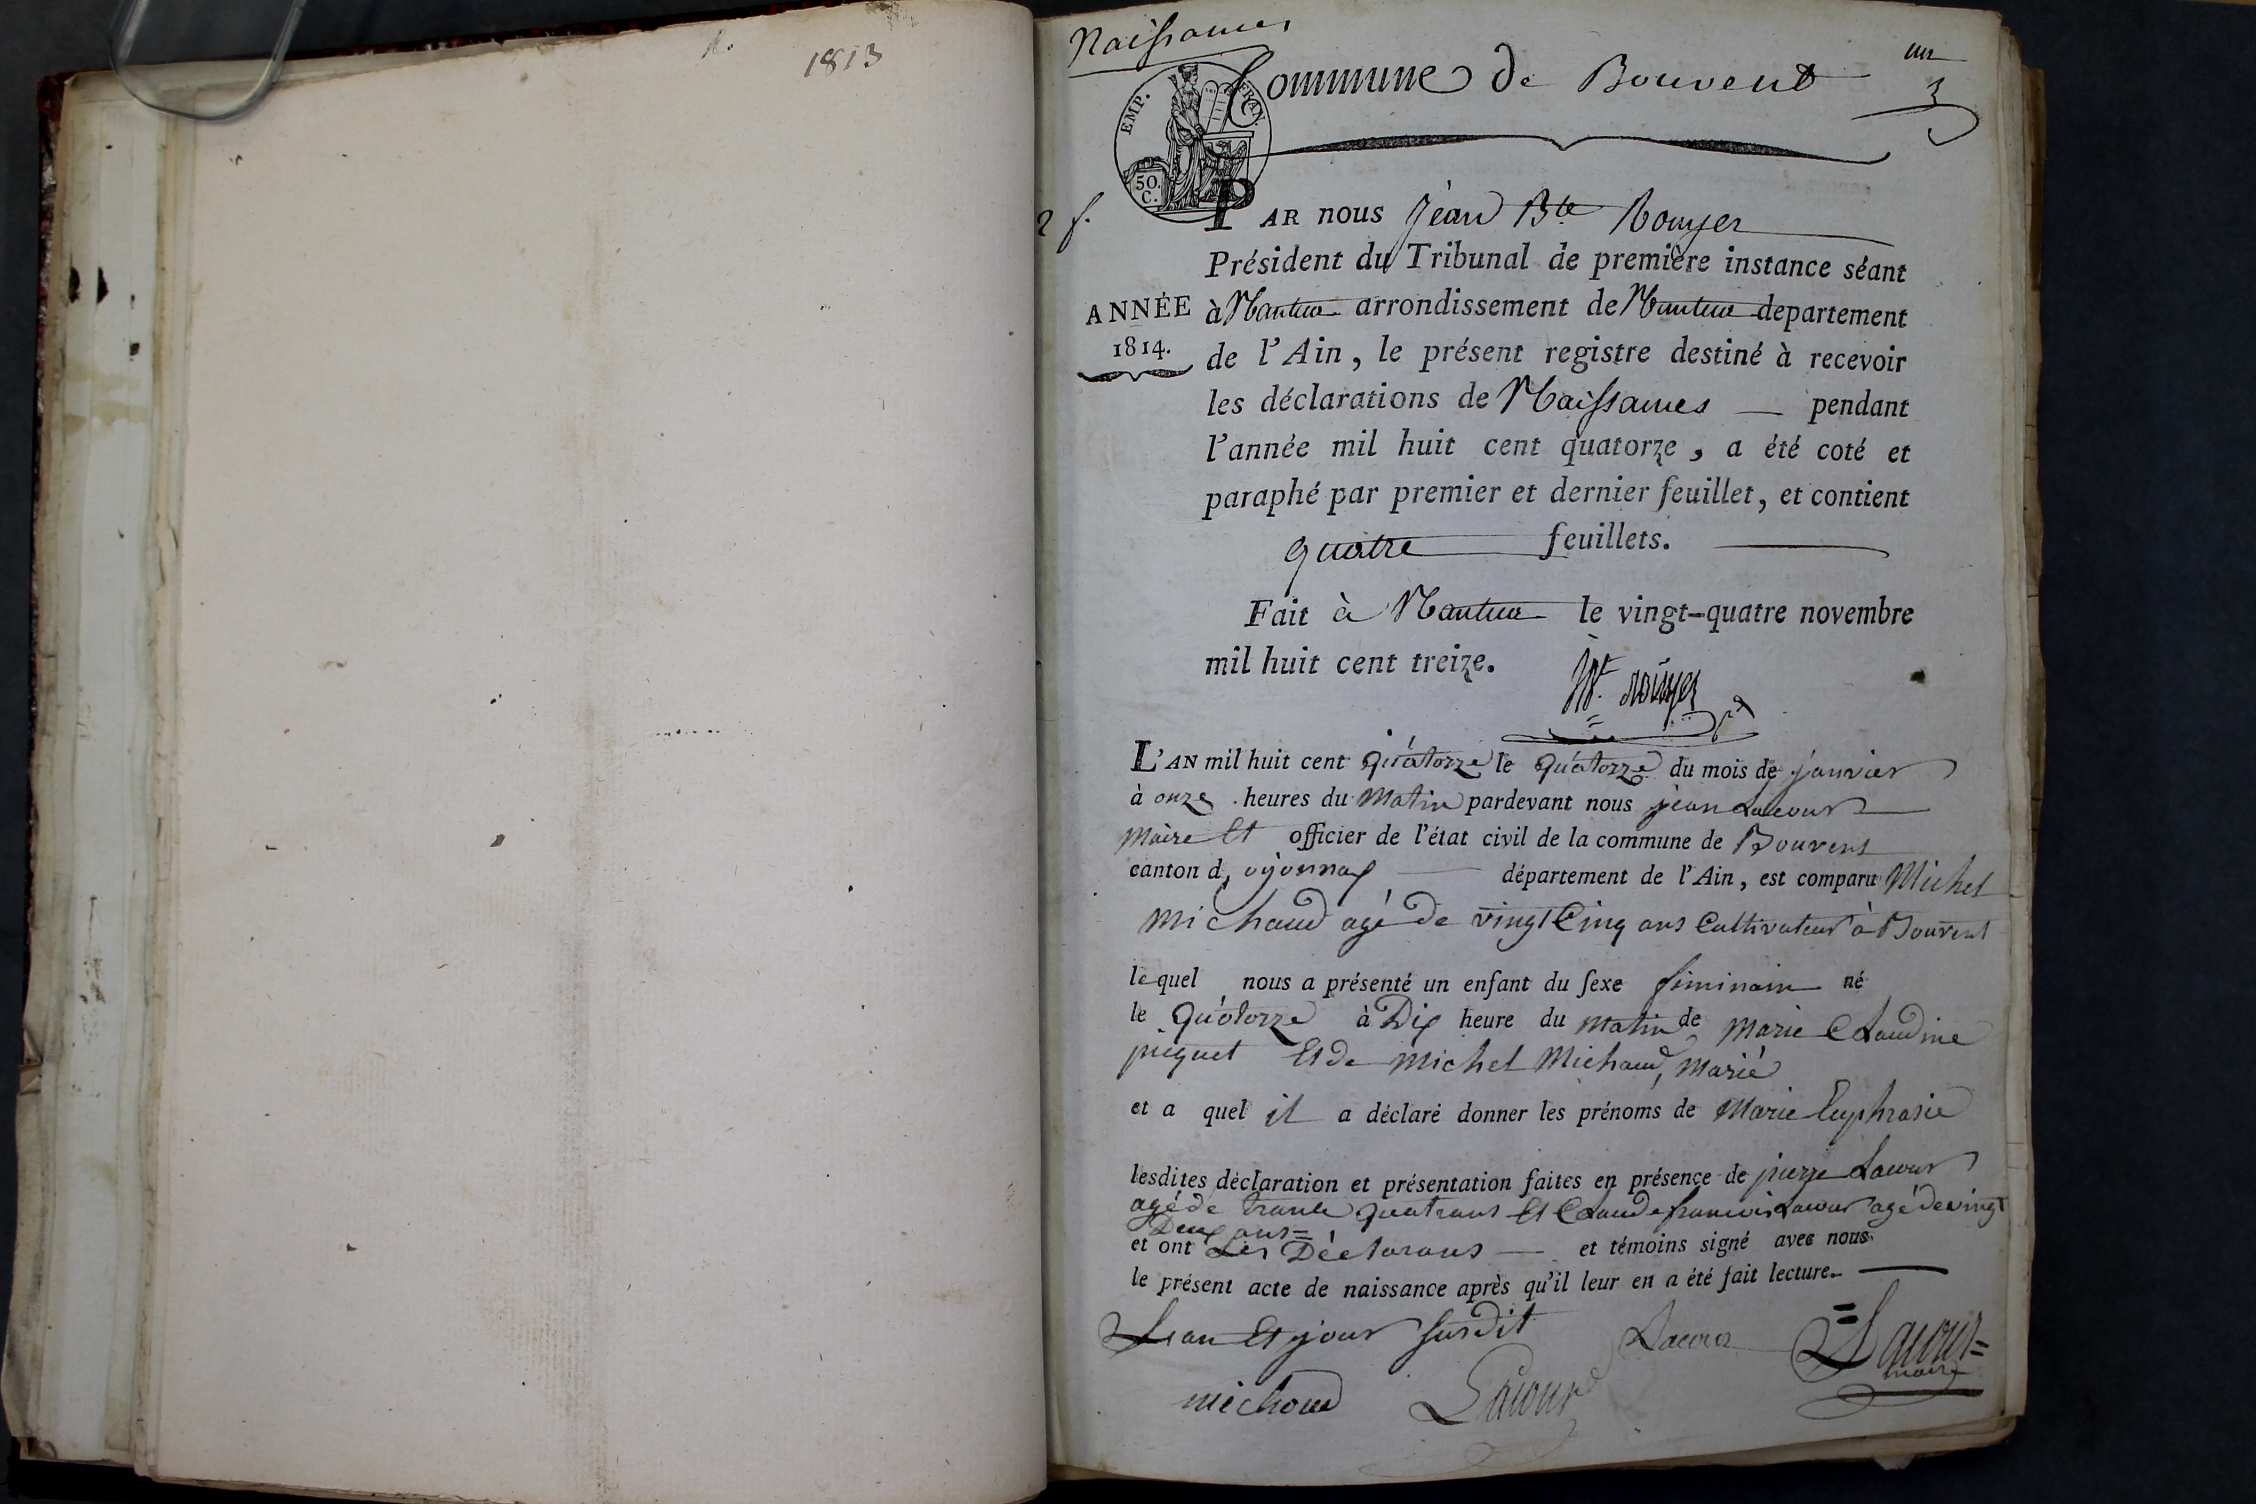 1813
Naissances
un
Commune de Bouvent
EMP. FRAN.
50.
C.
2 f.
PAR nous Jean Bte Rouyer
Président du Tribunal de première instance séant
ANNÉE
1814.
à Nantua arrondissement de Nantua departement
de l'Ain, le présent registre destiné à recevoir
les déclarations de Naissances — pendant
l'année mil huit cent quatorze, a été coté et
paraphé par premier et dernier feuillet, et contient
quatre feuillets.
Fait à Nantua le vingt-quatre novembre
mil huit cent treize.
Bt. rouyer
L'AN mil huit cent quatorze le quatorze du mois de janvier
à onze heures du matin pardevant nous jean Lacour
maire Et officier de l'état civil de la commune de Bouvent
canton d, oyonnax département de l'Ain, est comparu Michel
Michaud agé de vingt Cinq ans Cultivateur à Bouvent
lequel nous a présenté un enfant du sexe feminain né
le quatorze à Dix heure du matin de marie Claudine
piquet Et de Michel Michaud, Marié
et a quel il a déclaré donner les prénoms de Marie Euphrasie
lesdites déclaration et présentation faites en présence de pierre Lacour
agé de trante quatrans Et Claude francois Lacour agé de vingt
Deux ans =
et ont Les Déclarans — et témoins signé avec nous
le présent acte de naissance après qu'il leur en a été fait lecture.
Lean Et jour susdit
Lacour Lacour
maire
michoud Lacour